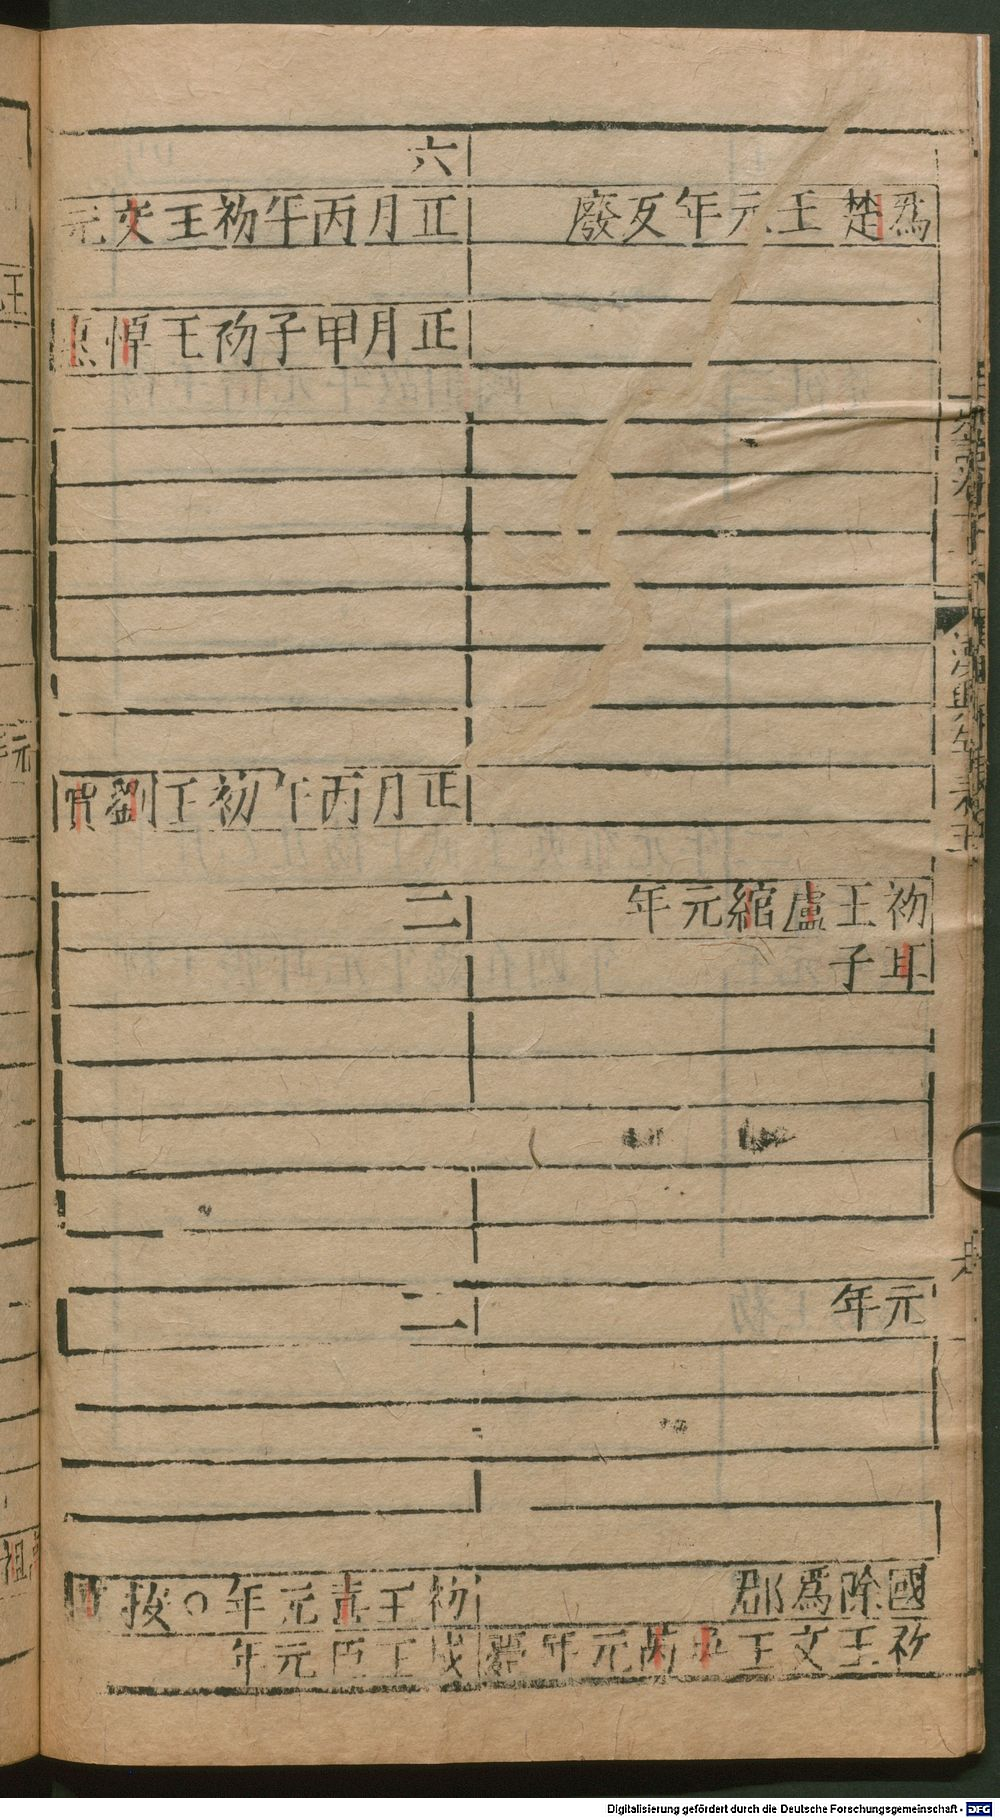 爲楚王元年反廢
初王盧綰元年
耳子
元年
國除爲郡
初王文王吳芮元年薨
六
正月丙午初王交元
正月甲子初王悼惠
正月丙午初王劉賈
二
二
初王喜元年○按
成王臣元年
Digitalisierung gefördert durch die Deutsche Forschungsgemeinschaft - DFG